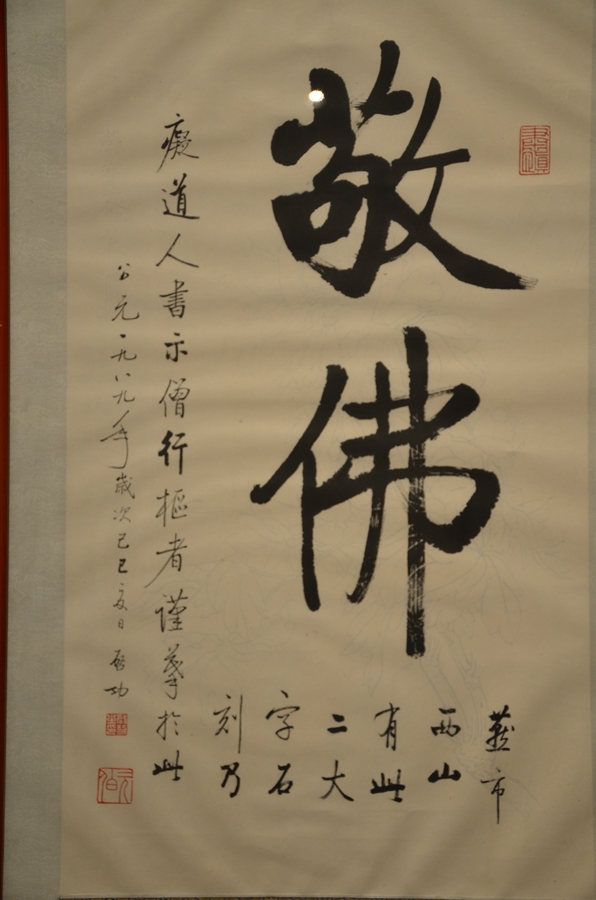 敬佛
燕市
西山
有此
二大
字石
刻乃
癡道人書示僧行樞者謹摹於此
公元一九八九年歲次己巳夏日 啓功